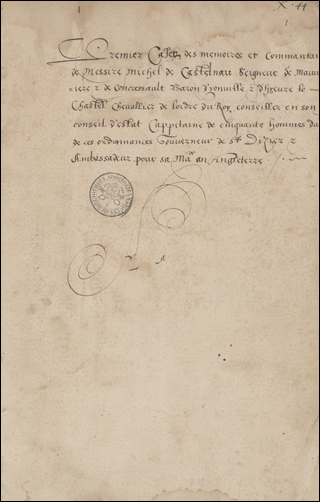 X. 44
Premier Cahier des memoires et Commentair
de Messire Michel de Castelnau Seigneur de Mauui
ssiere & de Concressault Baron Jonuille & dheure le
Chastel Cheuallier de lordre du Roy conseiller en son
conseil destat Cappitaine de cinquante hommes da
de ces ordonnances Gouuerneur de st Dizier &
Ambassadeur pour sa Mate en Angleterre